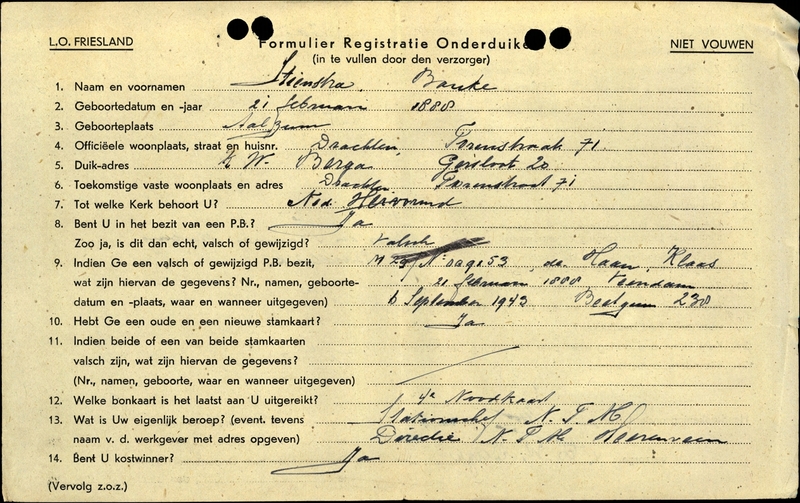 L.O. FRIESLAND
Formulier Registratie Onderduike
NIET VOUWEN
(in te vullen door den verzorger)
1. Naam en voornamen Stienstra, Bauke
2. Geboortedatum en -jaar 21 februari 1888
3. Geboorteplaats Aalzum
4. Officiëele woonplaats, straat en huisnr. Drachten, Torenstraat 71
5. Duik-adres W. Berga Gersloot 20
6. Toekomstige vaste woonplaats en adres Drachten Torenstraat 71
7. Tot welke Kerk behoort U? Ned. Hervormd
8. Bent U in het bezit van een P.B.? Ja
Zoo ja, is dit dan echt, valsch of gewijzigd? Valsch
9. Indien Ge een valsch of gewijzigd P.B. bezit, de Haan, Klaas
wat zijn hiervan de gegevens? Nr., namen, geboorte- 21 februari 1888 Veendam
datum en -plaats, waar en wanneer uitgegeven) 6 September 1943 230
10. Hebt Ge een oude en een nieuwe stamkaart? Ja
11. Indien beide of een van beide stamkaarten
valsch zijn, wat zijn hiervan de gegevens?
(Nr., namen, geboorte, waar en wanneer uitgegeven)
12. Welke bonkaart is het laatst aan U uitgereikt? 4e Noodkaart
13. Wat is Uw eigenlijk beroep? (event. tevens Stationschef N.T.M.
naam v. d. werkgever met adres opgeven) Directie N.T.M. Heerenveen
14. Bent U kostwinner? Ja
(Vervolg z.o.z.)